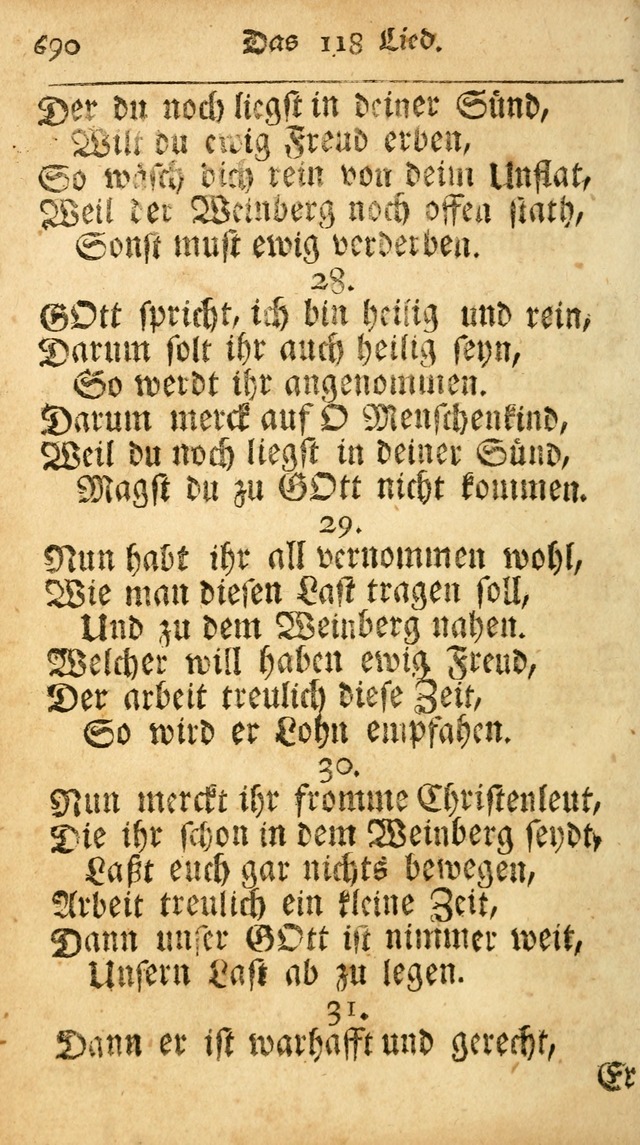 690 Das 118 Lied.
Der du noch liegst in deiner Sünd,
Wilt du ewig Freud erben,
So wäsch dich rein von deim Unflat,
Weil der Weinberg noch offen stath,
Sonst must ewig verderben.
28.
GOtt spricht, ich bin heilig und rein,
Darum solt ihr auch heilig seyn,
So werdt ihr angenommen.
Darum merck auf O Menschenkind,
Weil du noch liegst in deiner Sünd,
Magst du zu GOtt nicht kommen.
29.
Nun habt ihr all vernommen wohl,
Wie man diesen Last tragen soll,
Und zu dem Weinberg nahen.
Welcher will haben ewig Freud,
Der arbeit treulich diese Zeit,
So wird er Lohn empfahen.
30.
Nun merckt ihr fromme Christenleut,
Die ihr schon in dem Weinberg seydt,
Laßt euch gar nichts bewegen,
Arbeit treulich ein kleine Zeit,
Dann unser GOtt ist nimmer weit,
Unsern Last ab zu legen.
31.
Dann er ist warhafft und gerecht,
Er